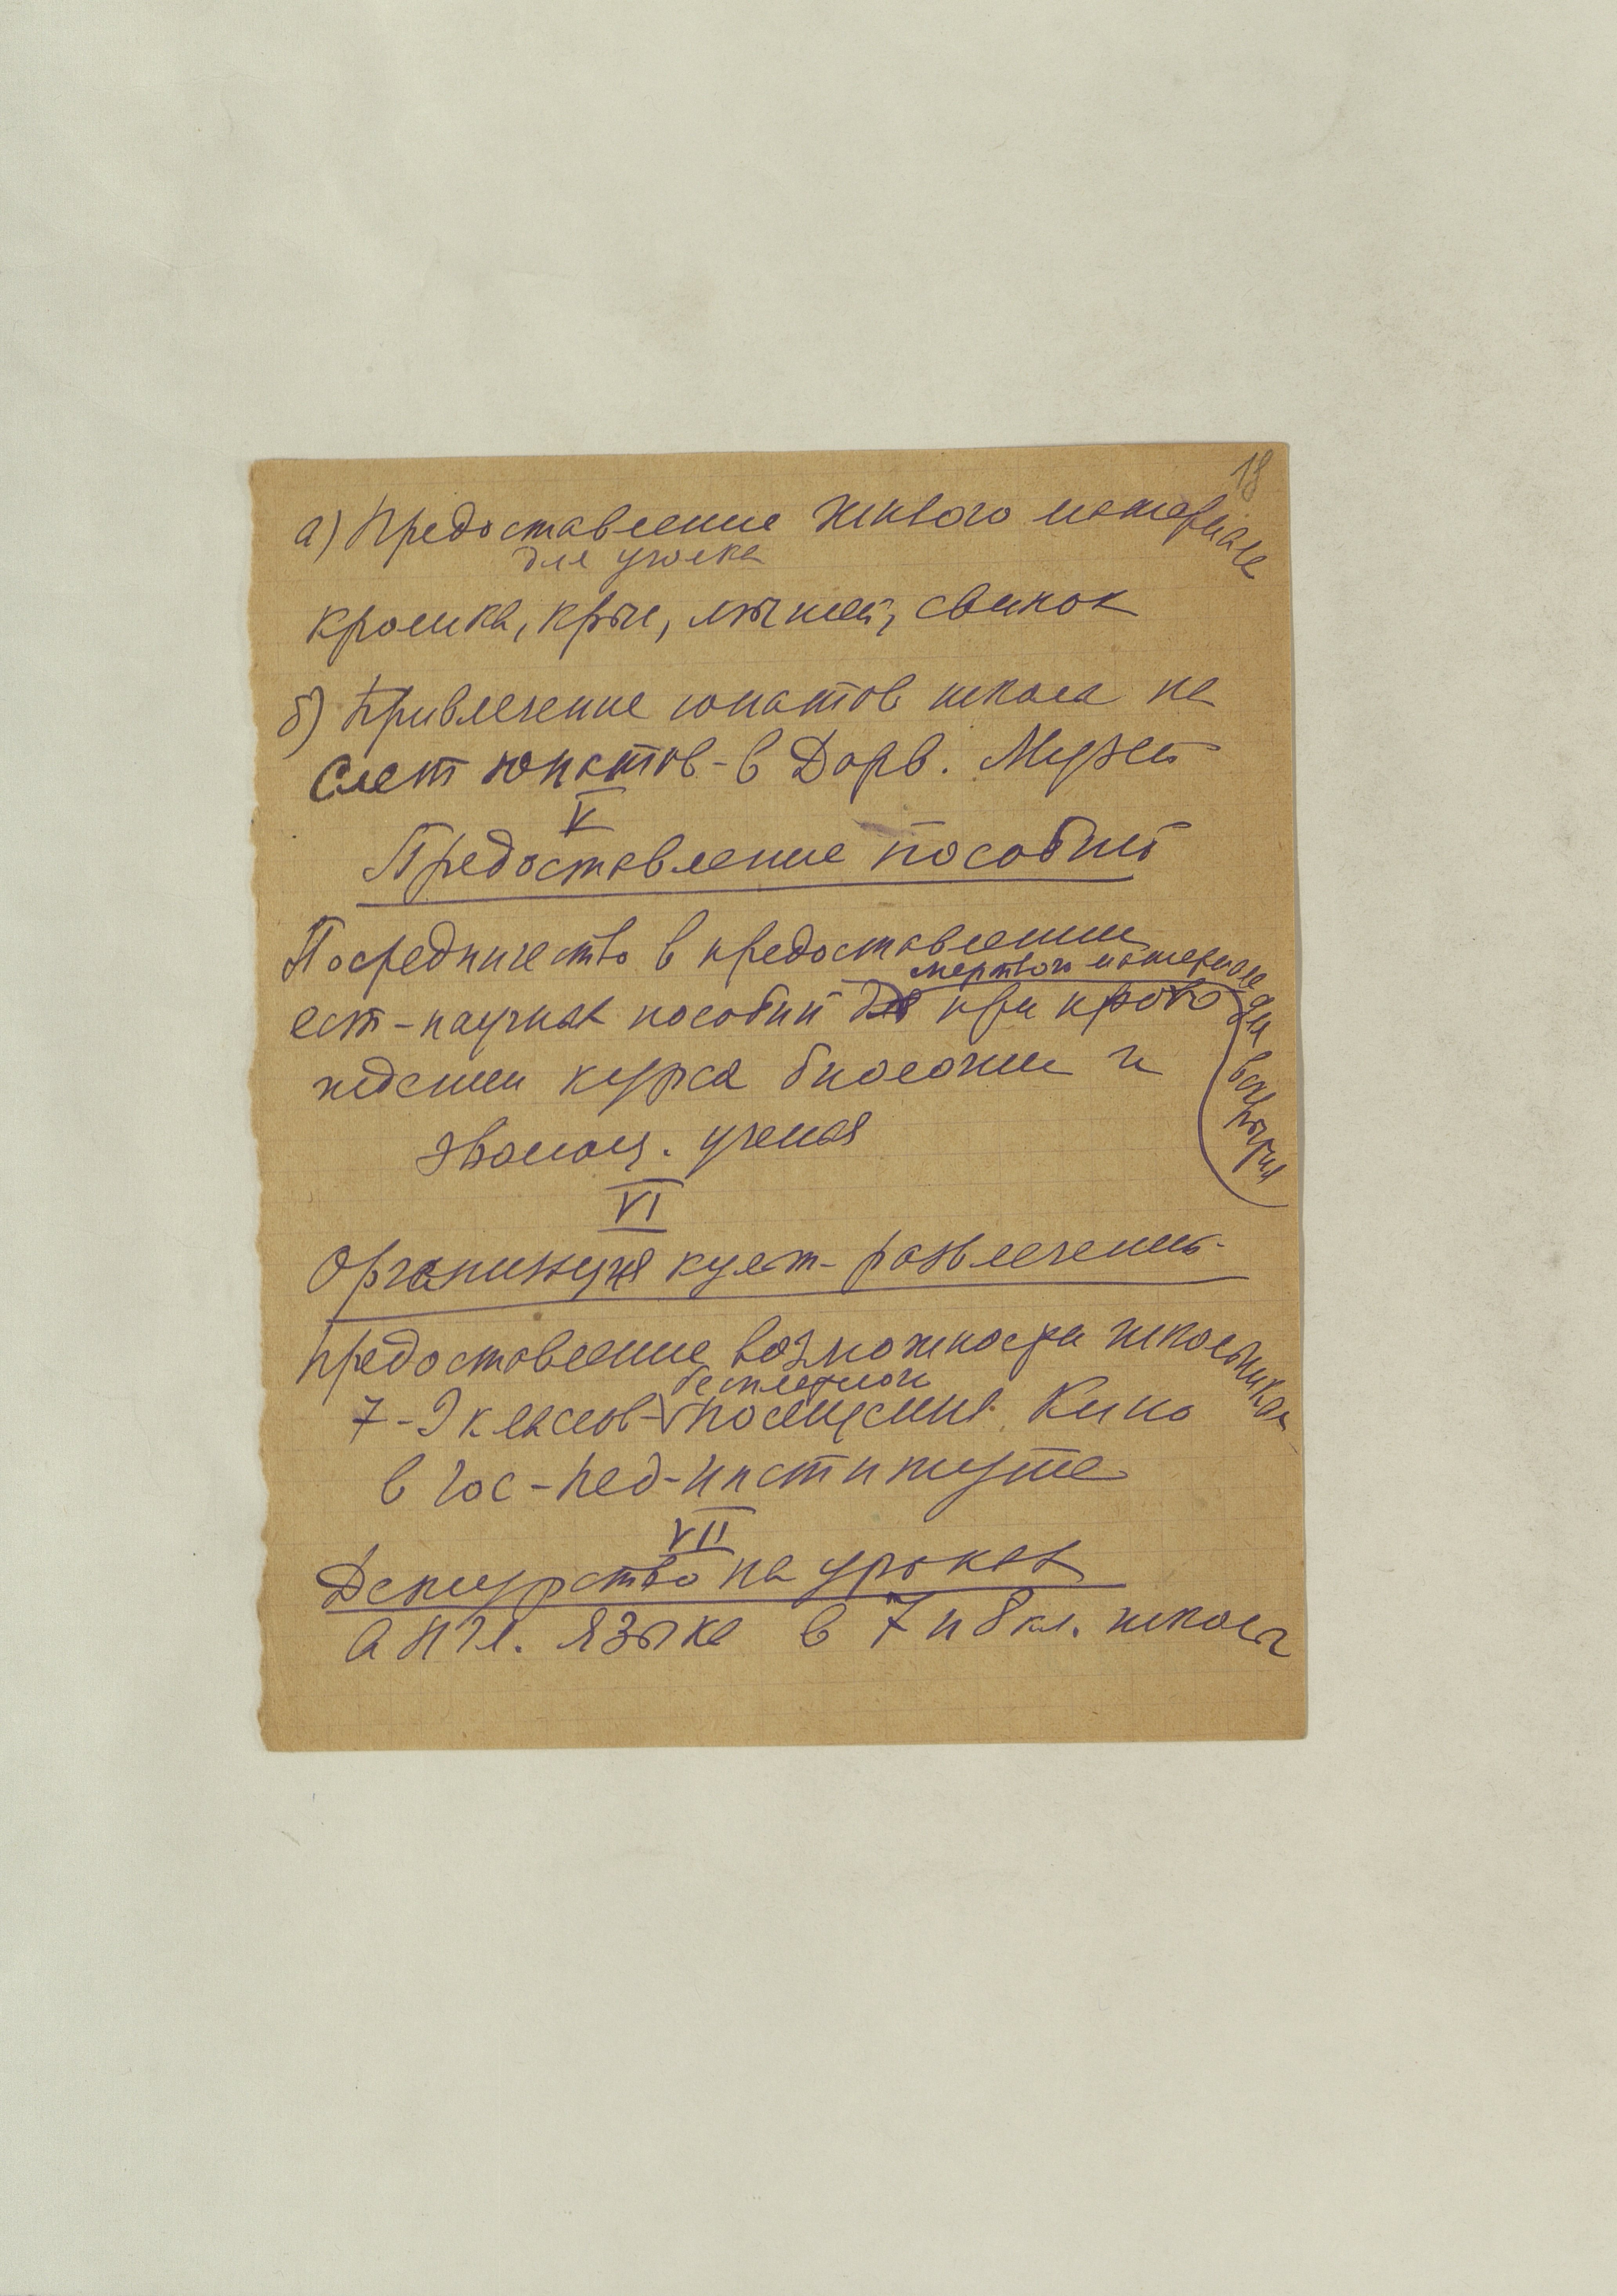 18
а) Предоставление живого материала
для уголка
кролика, крыс, мышей, свинок
б) Привлечение юнатов школы на
Слет юнатов - в Дарв. Музей
V
Предоставление пособий
Посредничество в предоставлении
мертвого материала для вскрытия
ест-научных пособий при прово
ждении курса биологии и
эволюц. учения
VI
Организация культ-развлечений.
Предоставление возможности школьникам
бесплатного
7-9 классов - посещения Кино
в Гос-Пед-Институте
VII
Дежурство на уроках
Англ. языка в 7 и 8 кл. школы